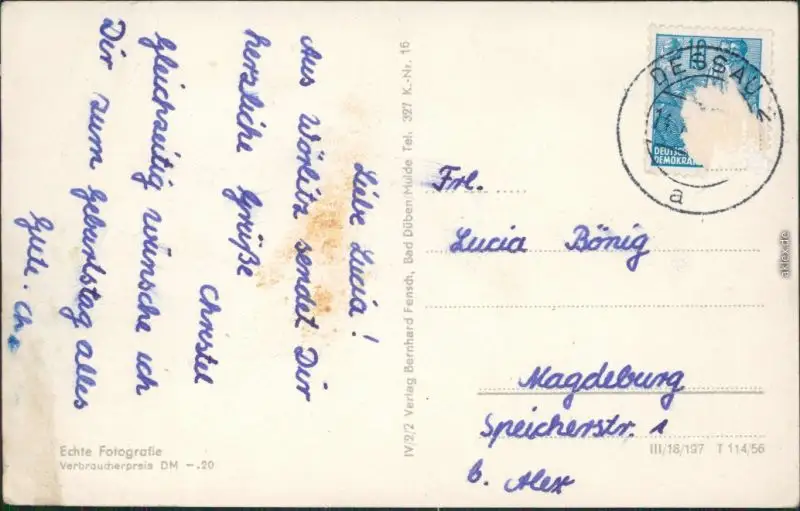 Liebe Lucia!
Aus Wörlitz sendet Dir
herzliche Grüße
Christel
Gleichzeitig wünsche ich
Dir zum Geburtstag alles
Gute. Ch.
Echte Fotografie
Verbraucherpreis DM –.20
IV/2/2 Verlag Bernhard Fensch, Bad Düben/Mulde Tel. 327 K.-Nr. 16
10
DEUTSCHE
DEMOKRA
DESSAU 2
a
Frl.
Lucia Bönig
Magdeburg
Speicherstr. 1
b. Alex
III/18/197 T 114/56
akpool.de